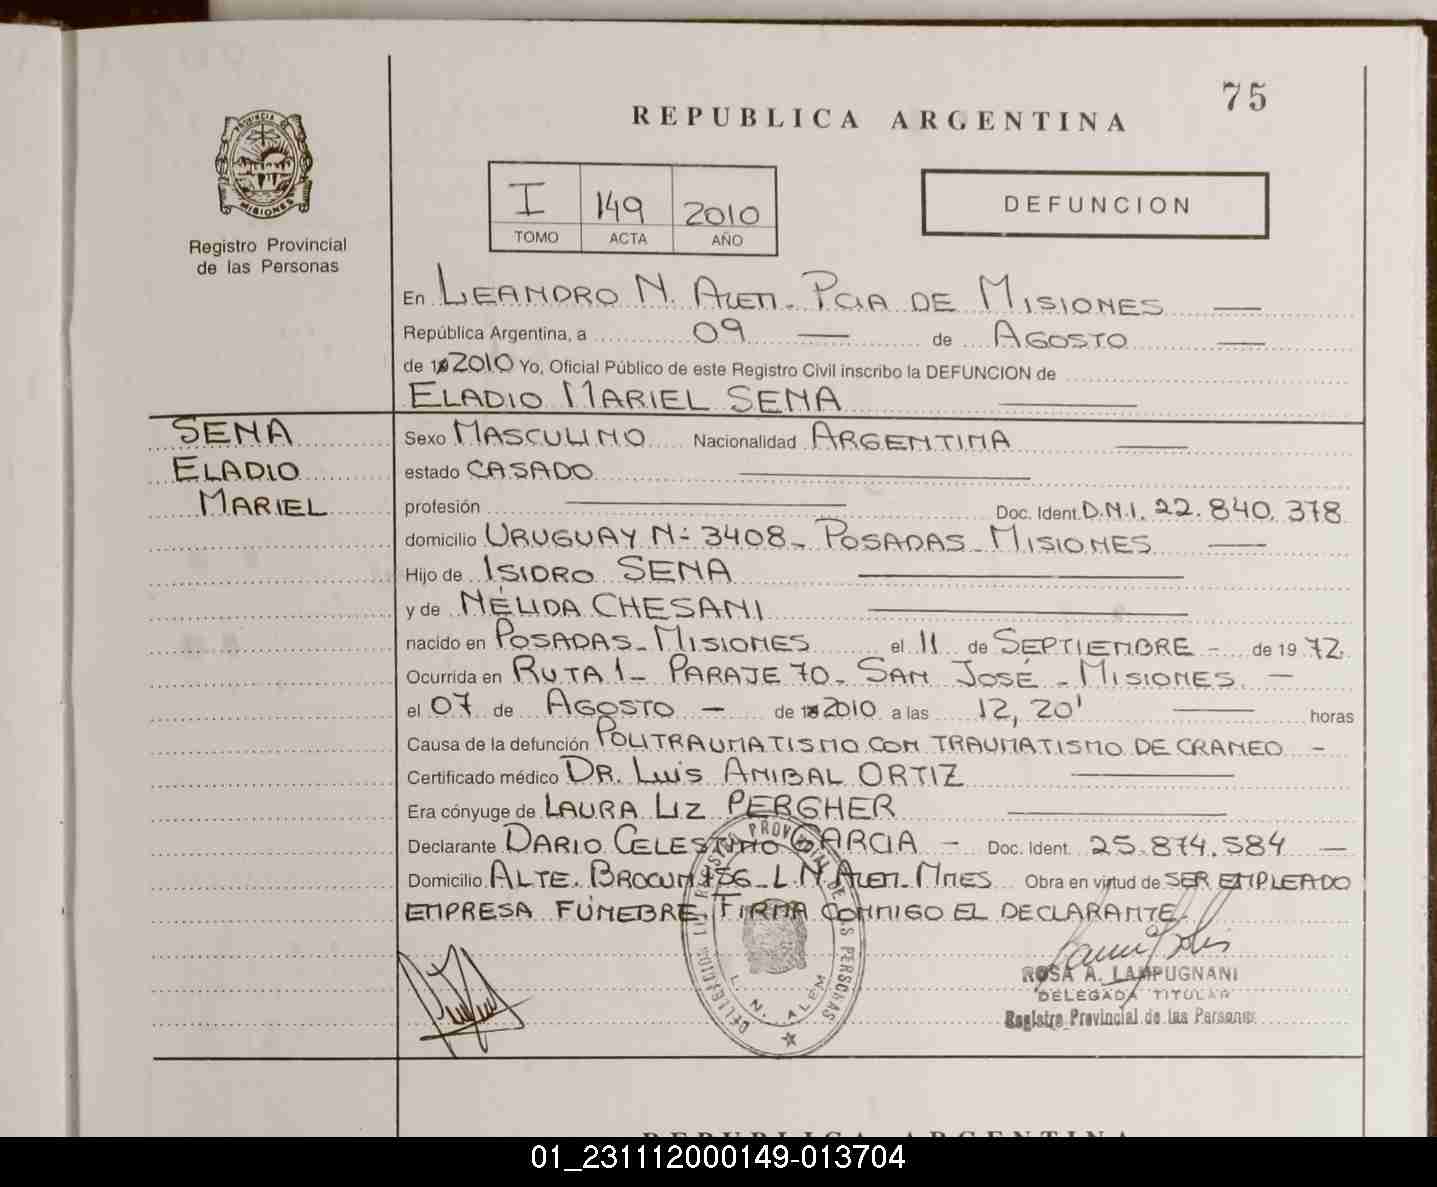 75
REPUBLICA ARGENTINA
PROVINCIA DE
MISIONES
Registro Provincial
de las Personas
I 149 2010
TOMO ACTA AÑO
DEFUNCION
En LEANDRO N. ALEM - PCIA DE MISIONES
República Argentina, a 09 de AGOSTO
de 2010 Yo, Oficial Público de este Registro Civil inscribo la DEFUNCION de
ELADIO MARIEL SENA
SENA
ELADIO
MARIEL
Sexo MASCULINO Nacionalidad ARGENTINA
estado CASADO
profesión Doc. Ident. D.N.I. 22.840.378
domicilio URUGUAY Nº 3408 - POSADAS - MISIONES
Hijo de ISIDRO SENA
y de NÉLIDA CHESANI
nacido en POSADAS - MISIONES el 11 de SEPTIEMBRE - de 1972
Ocurrida en RUTA 1 - PARAJE 70 - SAN JOSÉ - MISIONES. -
el 07 de AGOSTO - de 2010 a las 12,20' horas
Causa de la defunción POLITRAUMATISMO CON TRAUMATISMO DE CRANEO -
Certificado médico DR. LUIS ANIBAL ORTIZ
Era cónyuge de LAURA LIZ PERGHER
Declarante DARIO CELESTINO GARCIA - Doc. Ident. 25.874.584 -
Domicilio ALTE. BROWN 756 - L.N. ALEM - MNES Obra en virtud de SER EMPLEADO
EMPRESA FÚNEBRE. FIRMA CONMIGO EL DECLARANTE.
REGISTRO PROVINCIAL DE LAS PERSONAS
DELEGACION
L. N. ALEM
ROSA A. LAMPUGNANI
DELEGADA TITULAR
Registro Provincial de las Personas
REPUBLICA ARGENTINA
01_231112000149-013704